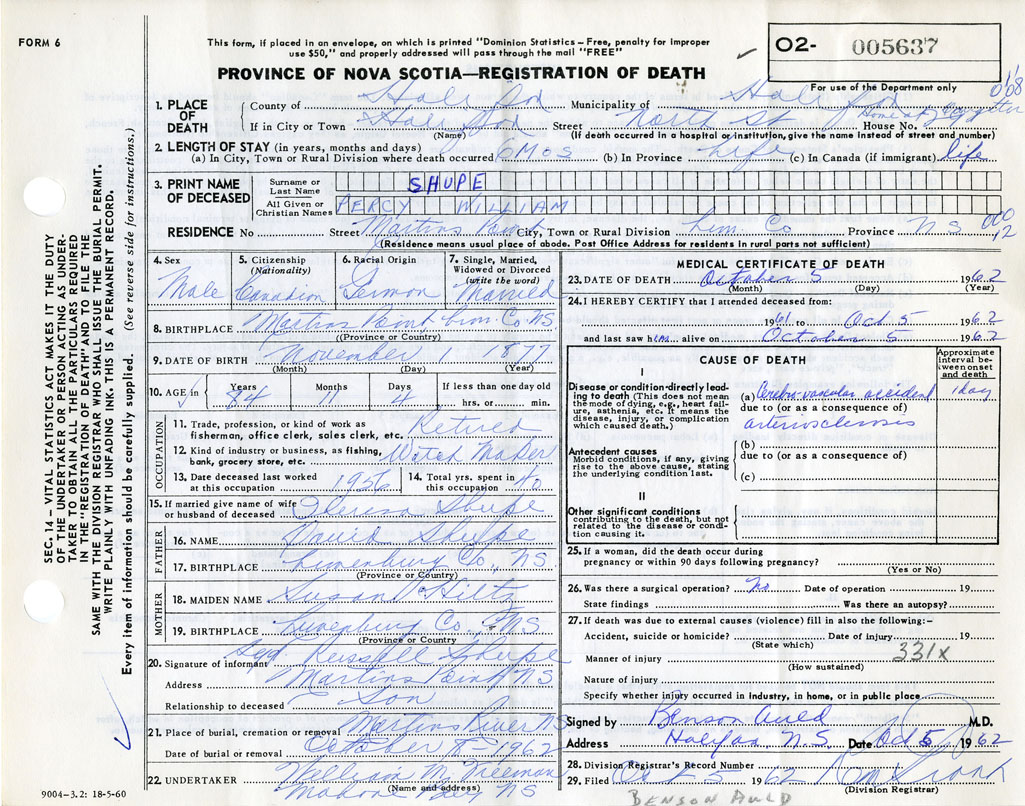 FORM 6
This form, if placed in an envelope, on which is printed "Dominion Statistics – Free, penalty for improper
use $50," and properly addressed will pass through the mail "FREE"
PROVINCE OF NOVA SCOTIA—REGISTRATION OF DEATH
O2- 005637
For use of the Department only
1. PLACE OF DEATH
County of Halifax Municipality of Halifax
If in City or Town Halifax Street North St House No.
(Name) (If death occurred in a hospital or institution, give the name instead of street and number)
2. LENGTH OF STAY (in years, months and days)
(a) In City, Town or Rural Division where death occurred 6 Mos (b) In Province Life (c) In Canada (if immigrant) life
3. PRINT NAME OF DECEASED
Surname or Last Name SHUPE
All Given or Christian Names PERCY WILLIAM
RESIDENCE No Street Martins Point City, Town or Rural Division Lun. Co Province N S
(Residence means usual place of abode. Post Office Address for residents in rural parts not sufficient)
4. Sex Male
5. Citizenship (Nationality) Canadian
6. Racial Origin German
7. Single, Married, Widowed or Divorced (write the word) Married
8. BIRTHPLACE Martins Point Lun. Co NS
(Province or Country)
9. DATE OF BIRTH November 1 1877
(Month) (Day) (Year)
10. AGE in Years 84 Months 11 Days 4 If less than one day old
hrs. or min.
OCCUPATION
11. Trade, profession, or kind of work as
fisherman, office clerk, sales clerk, etc. Retired
12. Kind of industry or business, as fishing,
bank, grocery store, etc. Watch Maker
13. Date deceased last worked
at this occupation 1956
14. Total yrs. spent in
this occupation
15. If married give name of wife
or husband of deceased Theresa Shupe
FATHER
16. NAME David Shupe
17. BIRTHPLACE Lunenburg Co., NS
(Province or Country)
MOTHER
18. MAIDEN NAME Susan Hiltz
19. BIRTHPLACE Lunenburg Co., NS
(Province or Country)
20. Signature of informant Sgd Russell Shupe
Address Martins Point NS
Relationship to deceased Son
21. Place of burial, cremation or removal Martins River NS
Date of burial or removal October 8 - 1962
22. UNDERTAKER William M. Freeman
Mahone Bay NS
(Name and address)
MEDICAL CERTIFICATE OF DEATH
23. DATE OF DEATH October 5 1962
(Month) (Day) (Year)
24. I HEREBY CERTIFY that I attended deceased from:
1961 to Oct 5 1962
and last saw him alive on October 5 1962
CAUSE OF DEATH
Approximate interval between onset and death
I
Disease or condition directly leading to death (This does not mean
the mode of dying, e.g., heart failure, asthenia, etc. It means the
disease, injury, or complication
which caused death.)
(a) Cerebro-vascular accident 1 day
due to (or as a consequence of)
arteriosclerosis
Antecedent causes
Morbid conditions, if any, giving
rise to the above cause, stating
the underlying condition last.
(b)
due to (or as a consequence of)
(c)
II
Other significant conditions
contributing to the death, but not
related to the disease or condition causing it.
25. If a woman, did the death occur during
pregnancy or within 90 days following pregnancy?
(Yes or No)
26. Was there a surgical operation? No Date of operation 19
State findings Was there an autopsy?
27. If death was due to external causes (violence) fill in also the following:–
Accident, suicide or homicide? Date of injury 19
(State which) 331x
Manner of injury
(How sustained)
Nature of injury
Specify whether injury occurred in industry, in home, or in public place
Signed by Benson Auld M.D.
Address Halifax N.S. Date Oct 5 1962
28. Division Registrar's Record Number
29. Filed Oct 5 1962
(Division Registrar)
BENSON AULD
9004-3.2: 18-5-60
SEC. 14 – VITAL STATISTICS ACT MAKES IT THE DUTY
OF THE UNDERTAKER OR PERSON ACTING AS UNDERTAKER
TO OBTAIN ALL THE PARTICULARS REQUIRED
IN THE "REGISTRATION OF DEATH" AND TO FILE THE
SAME WITH THE DIVISION REGISTRAR WHO SHALL ISSUE THE BURIAL PERMIT.
WRITE PLAINLY WITH UNFADING INK. THIS IS A PERMANENT RECORD.
Every item of information should be carefully supplied. (See reverse side for instructions.)